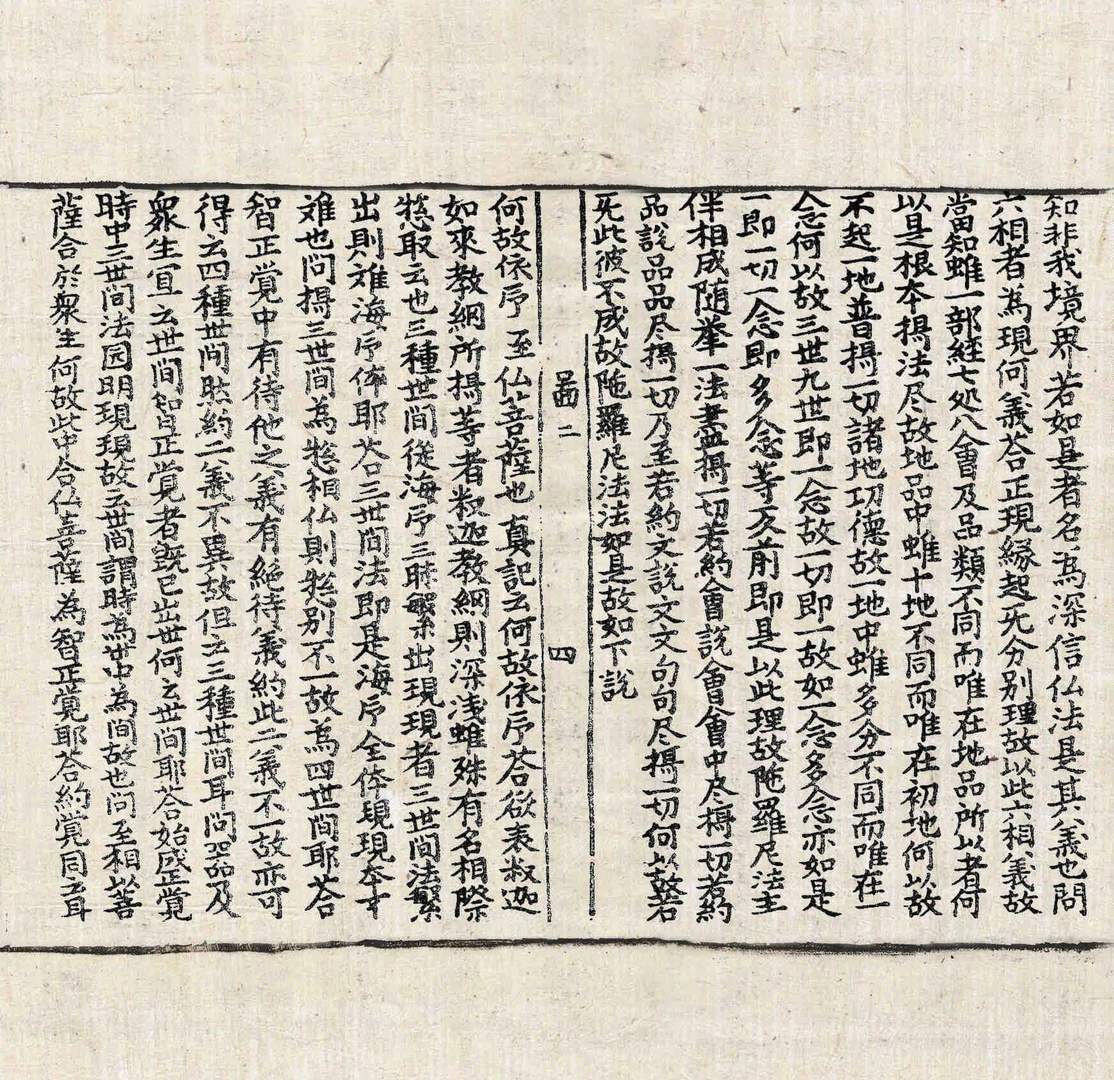 知非我境界若如是者名為深信仏法是其義也問
六相者為現何義荅正現縁起无分别理故以此六相義故
當知雖一部経七処八會及品類不同而唯在地品所以者何
以是根本攝法尽故地品中雖十地不同而唯在初地何以故
不起一地普攝一切諸地功德故一地中雖多分不同而唯在一
念何以故三世九世即一念故一切即一故如一念多念亦如是
一即一切一念即多念等反前即是以此理故陁羅尼法主
伴相成随挙一法盡攝一切若約會説會會中尽攝一切若約
品說品品尽攝一切乃至若約文説文文句句尽攝一切何以故若
无此彼不成故陁羅尼法法如是故如下説
啚二 四
何故依序至仏菩薩也真記云何故依序荅欲表釈迦
如來教網所攝等者釈迦教網則深浅雖殊有名相際
惣取云也三種世間從海序三昧繁出現現者三世間法繁
出則难海序体耶荅三世間法即是海序全体現現夲才
难也問攝三世間為惣相仏則惣别不一故為四世間耶荅
智正覚中有待他之義有絶待義約此二義不一故亦可
得云四種世间然約二義不異故但云三種世間耳问器及
衆生冝云世間智正覚者既已出世何云世间耶荅始盛正覚
時中三世间法圆明現現故云世間謂時為世中為間故也问至相以菩
薩合於衆生何故此中合仏菩薩為智正覚耶荅約覚同云耳